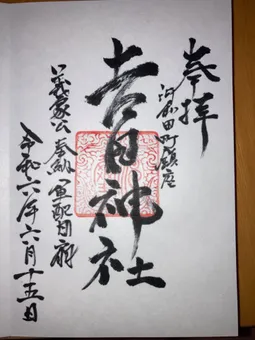 奉拝
河和田町鎮座
吉田神社
義家公奉納
令和六年六月十五日